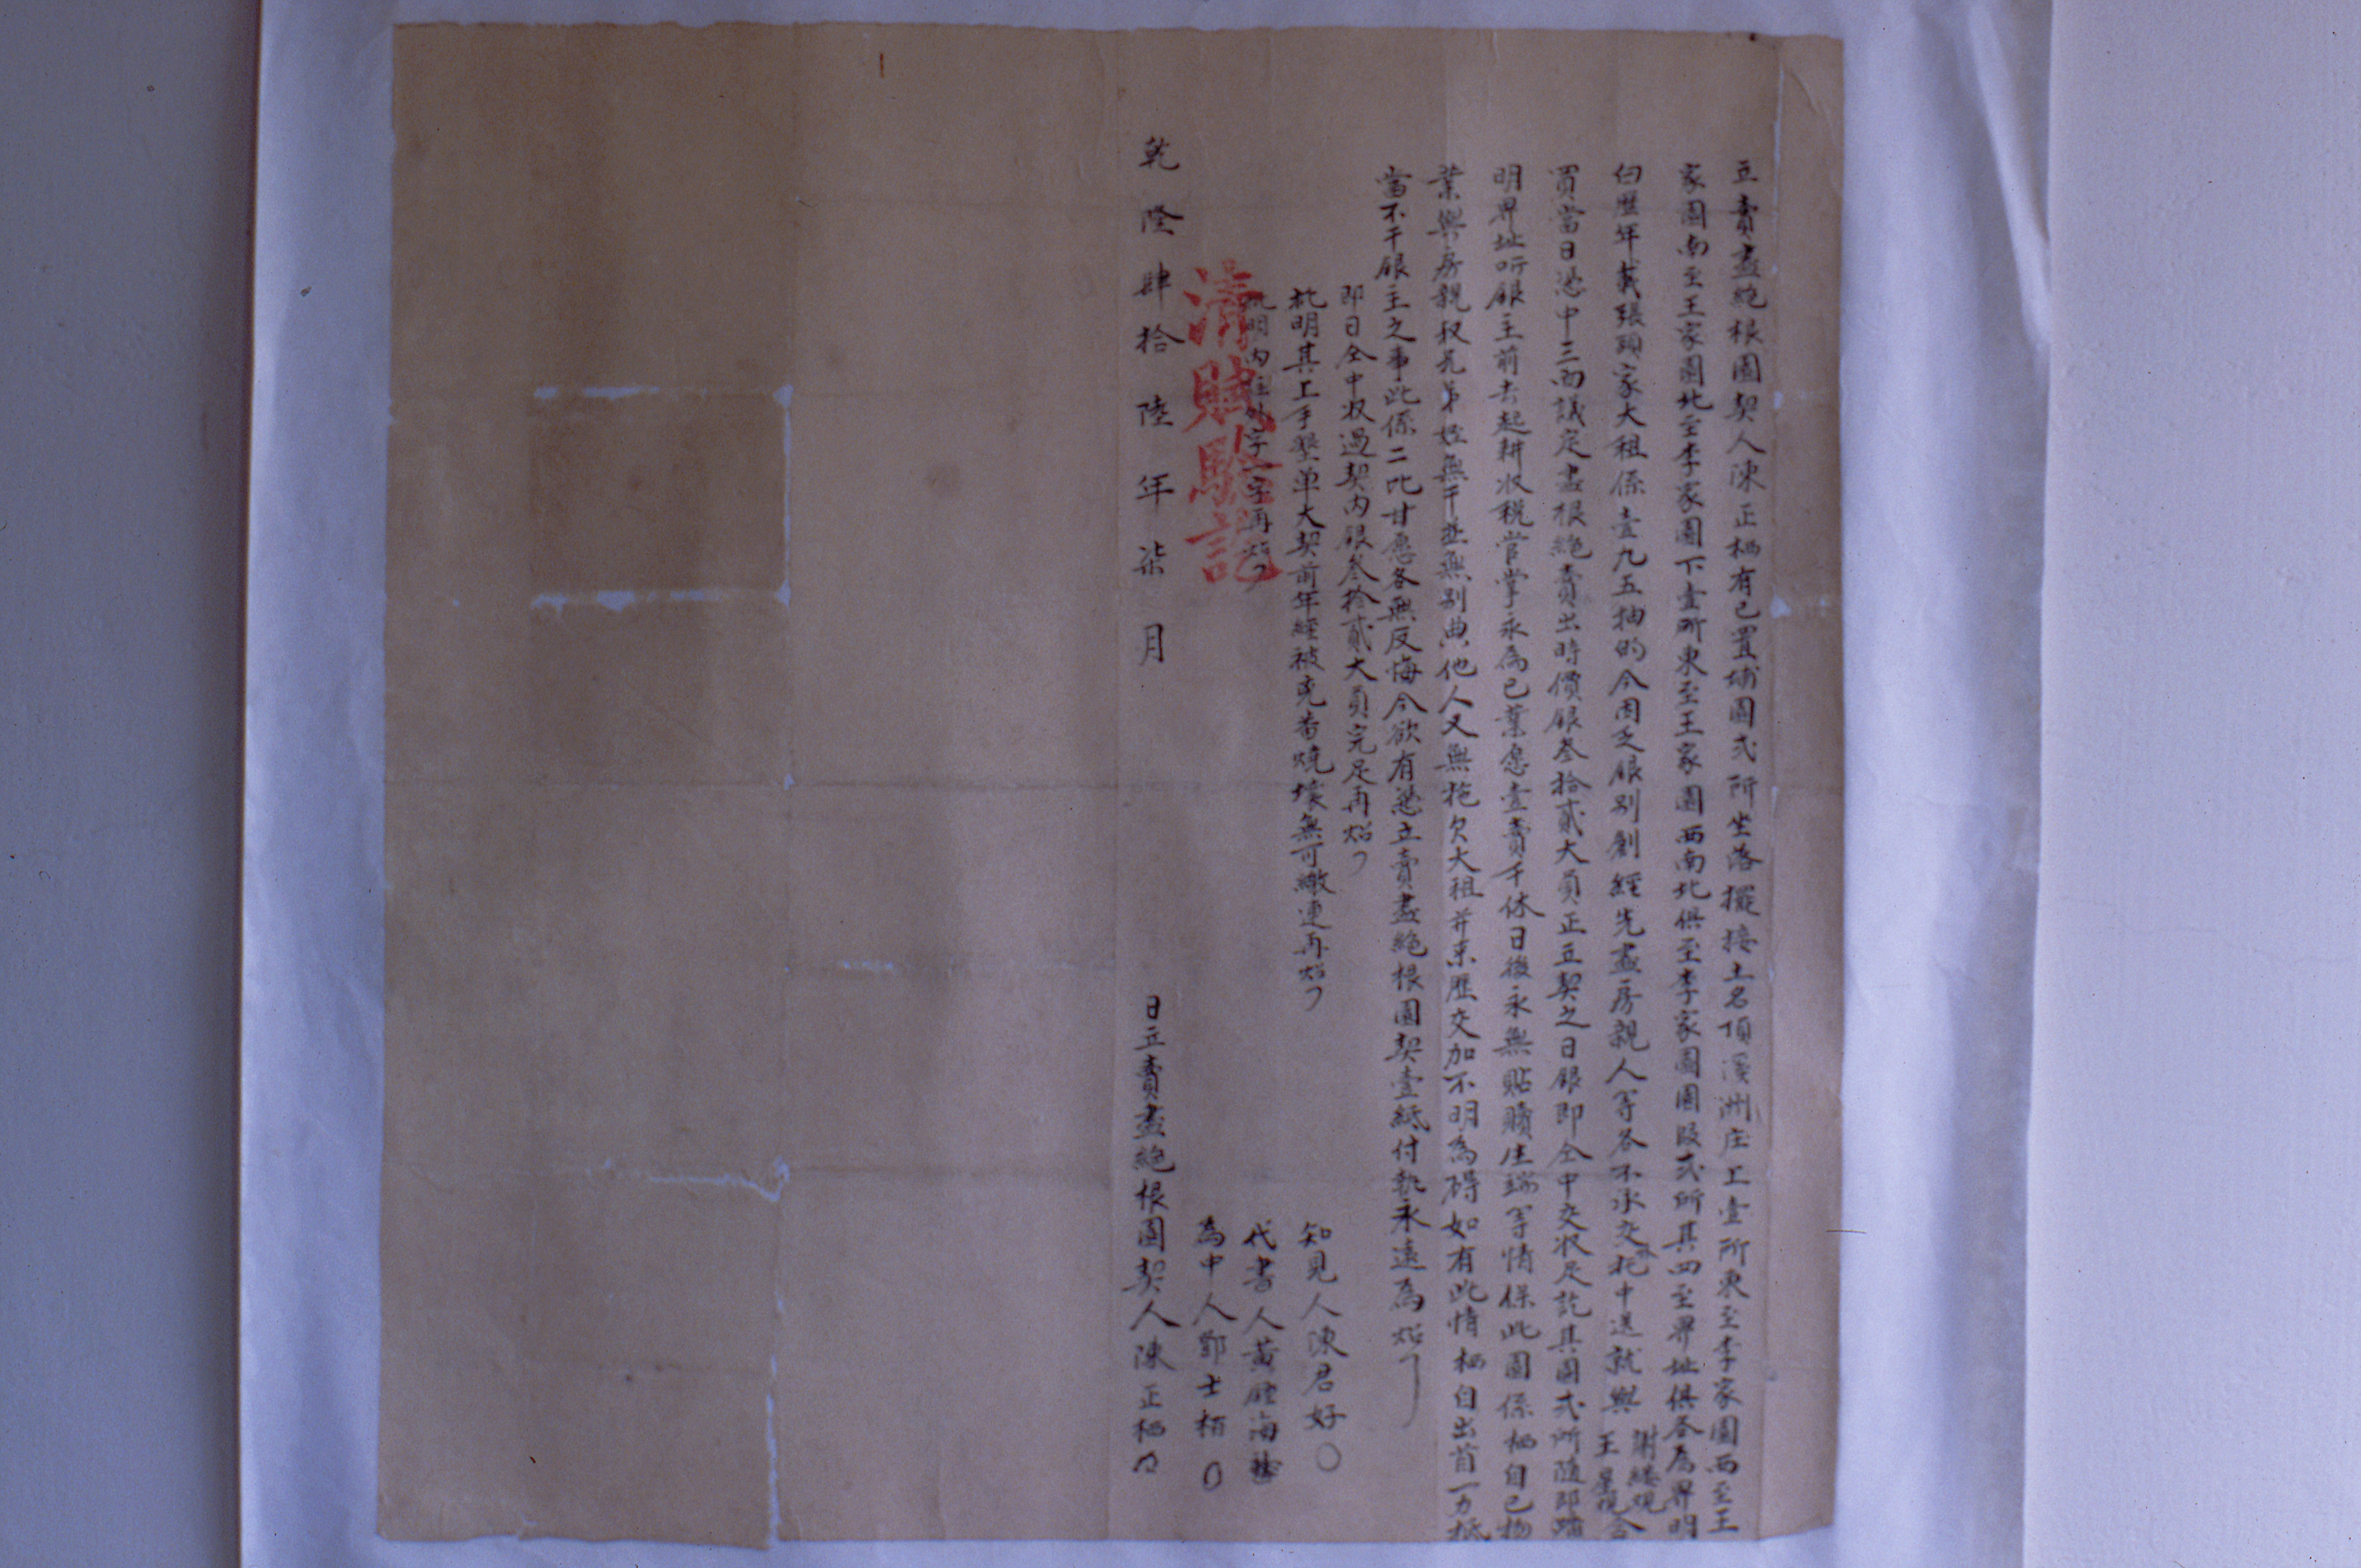 立賣盡絕根園契人陳正栖有已置埔園弍所坐落擺接土名頂溪洲庄上壹所東至李家園西至王
家園南至王家園北至李家園下壹所東至王家園西南北俱至李家園園段弍所其四至界址俱各為界明
白歷年載張頭家大租係壹九五抽的今因乏銀別創經先盡房親人等各不承交外托中送就與謝 觀王 觀合
買當日憑中三面議定盡根絕賣出時價銀叁拾貳大員正立契之日銀即仝中交收足訖其園弍所隨即踏
明界址听銀主前去起耕收稅管掌永為已業愿壹賣千休日後永無貼贖生端等情保此園係栖自已物
業與房親叔兄弟姪無干並無別典他人又無拖欠大租并來歷交加不明為碍如有此情栖自出首一力抵
當不干銀主之事此係二比甘愿各無反悔今欲有憑立賣盡絕根園契壹紙付執永遠為炤
即日仝中收過契內銀叁拾貳大員完足再炤
批明其上手墾单大契前年經被兇番燒壞無可繳連再炤
批明內註外字一字再炤
知見人陳君好
代書人黃 海
為中人鄞士栢
清賦驗訖
乾隆肆拾陸年柒月 日立賣盡絕根園契人陳正栖